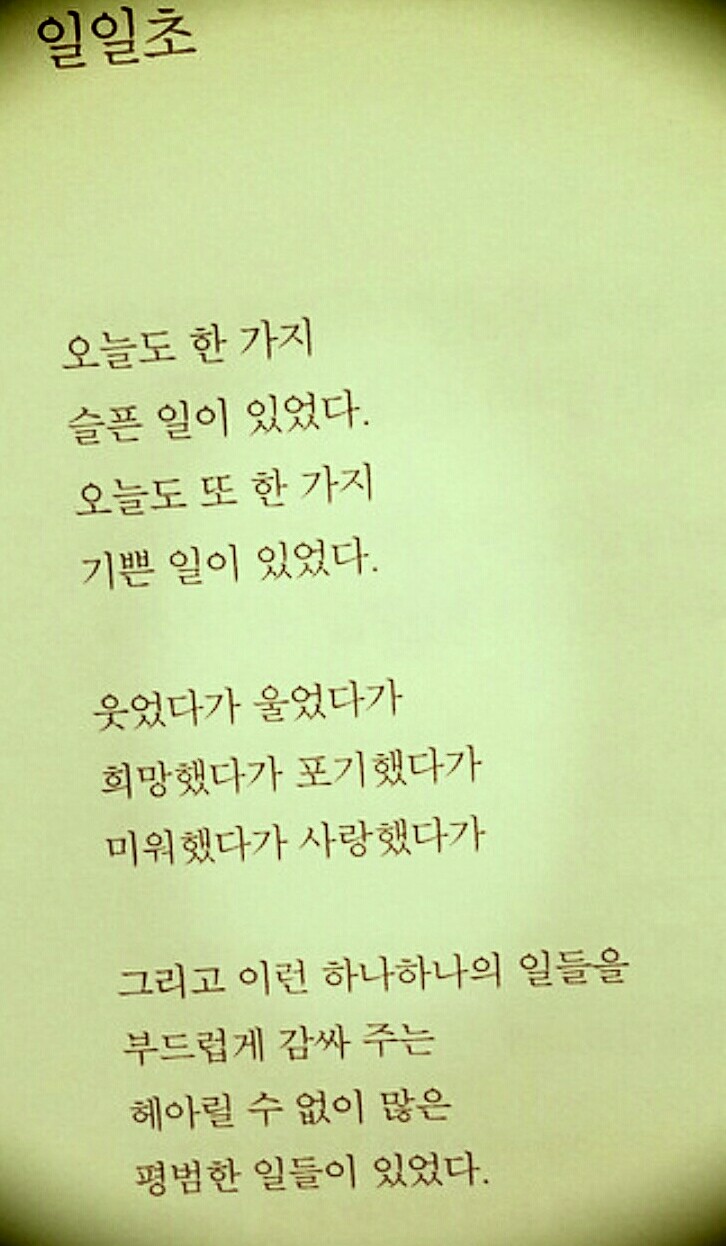 일일초
오늘도 한 가지
슬픈 일이 있었다.
오늘도 또 한 가지
기쁜 일이 있었다.
웃었다가 울었다가
희망했다가 포기했다가
미워했다가 사랑했다가
그리고 이런 하나하나의 일들을
부드럽게 감싸 주는
헤아릴 수 없이 많은
평범한 일들이 있었다.